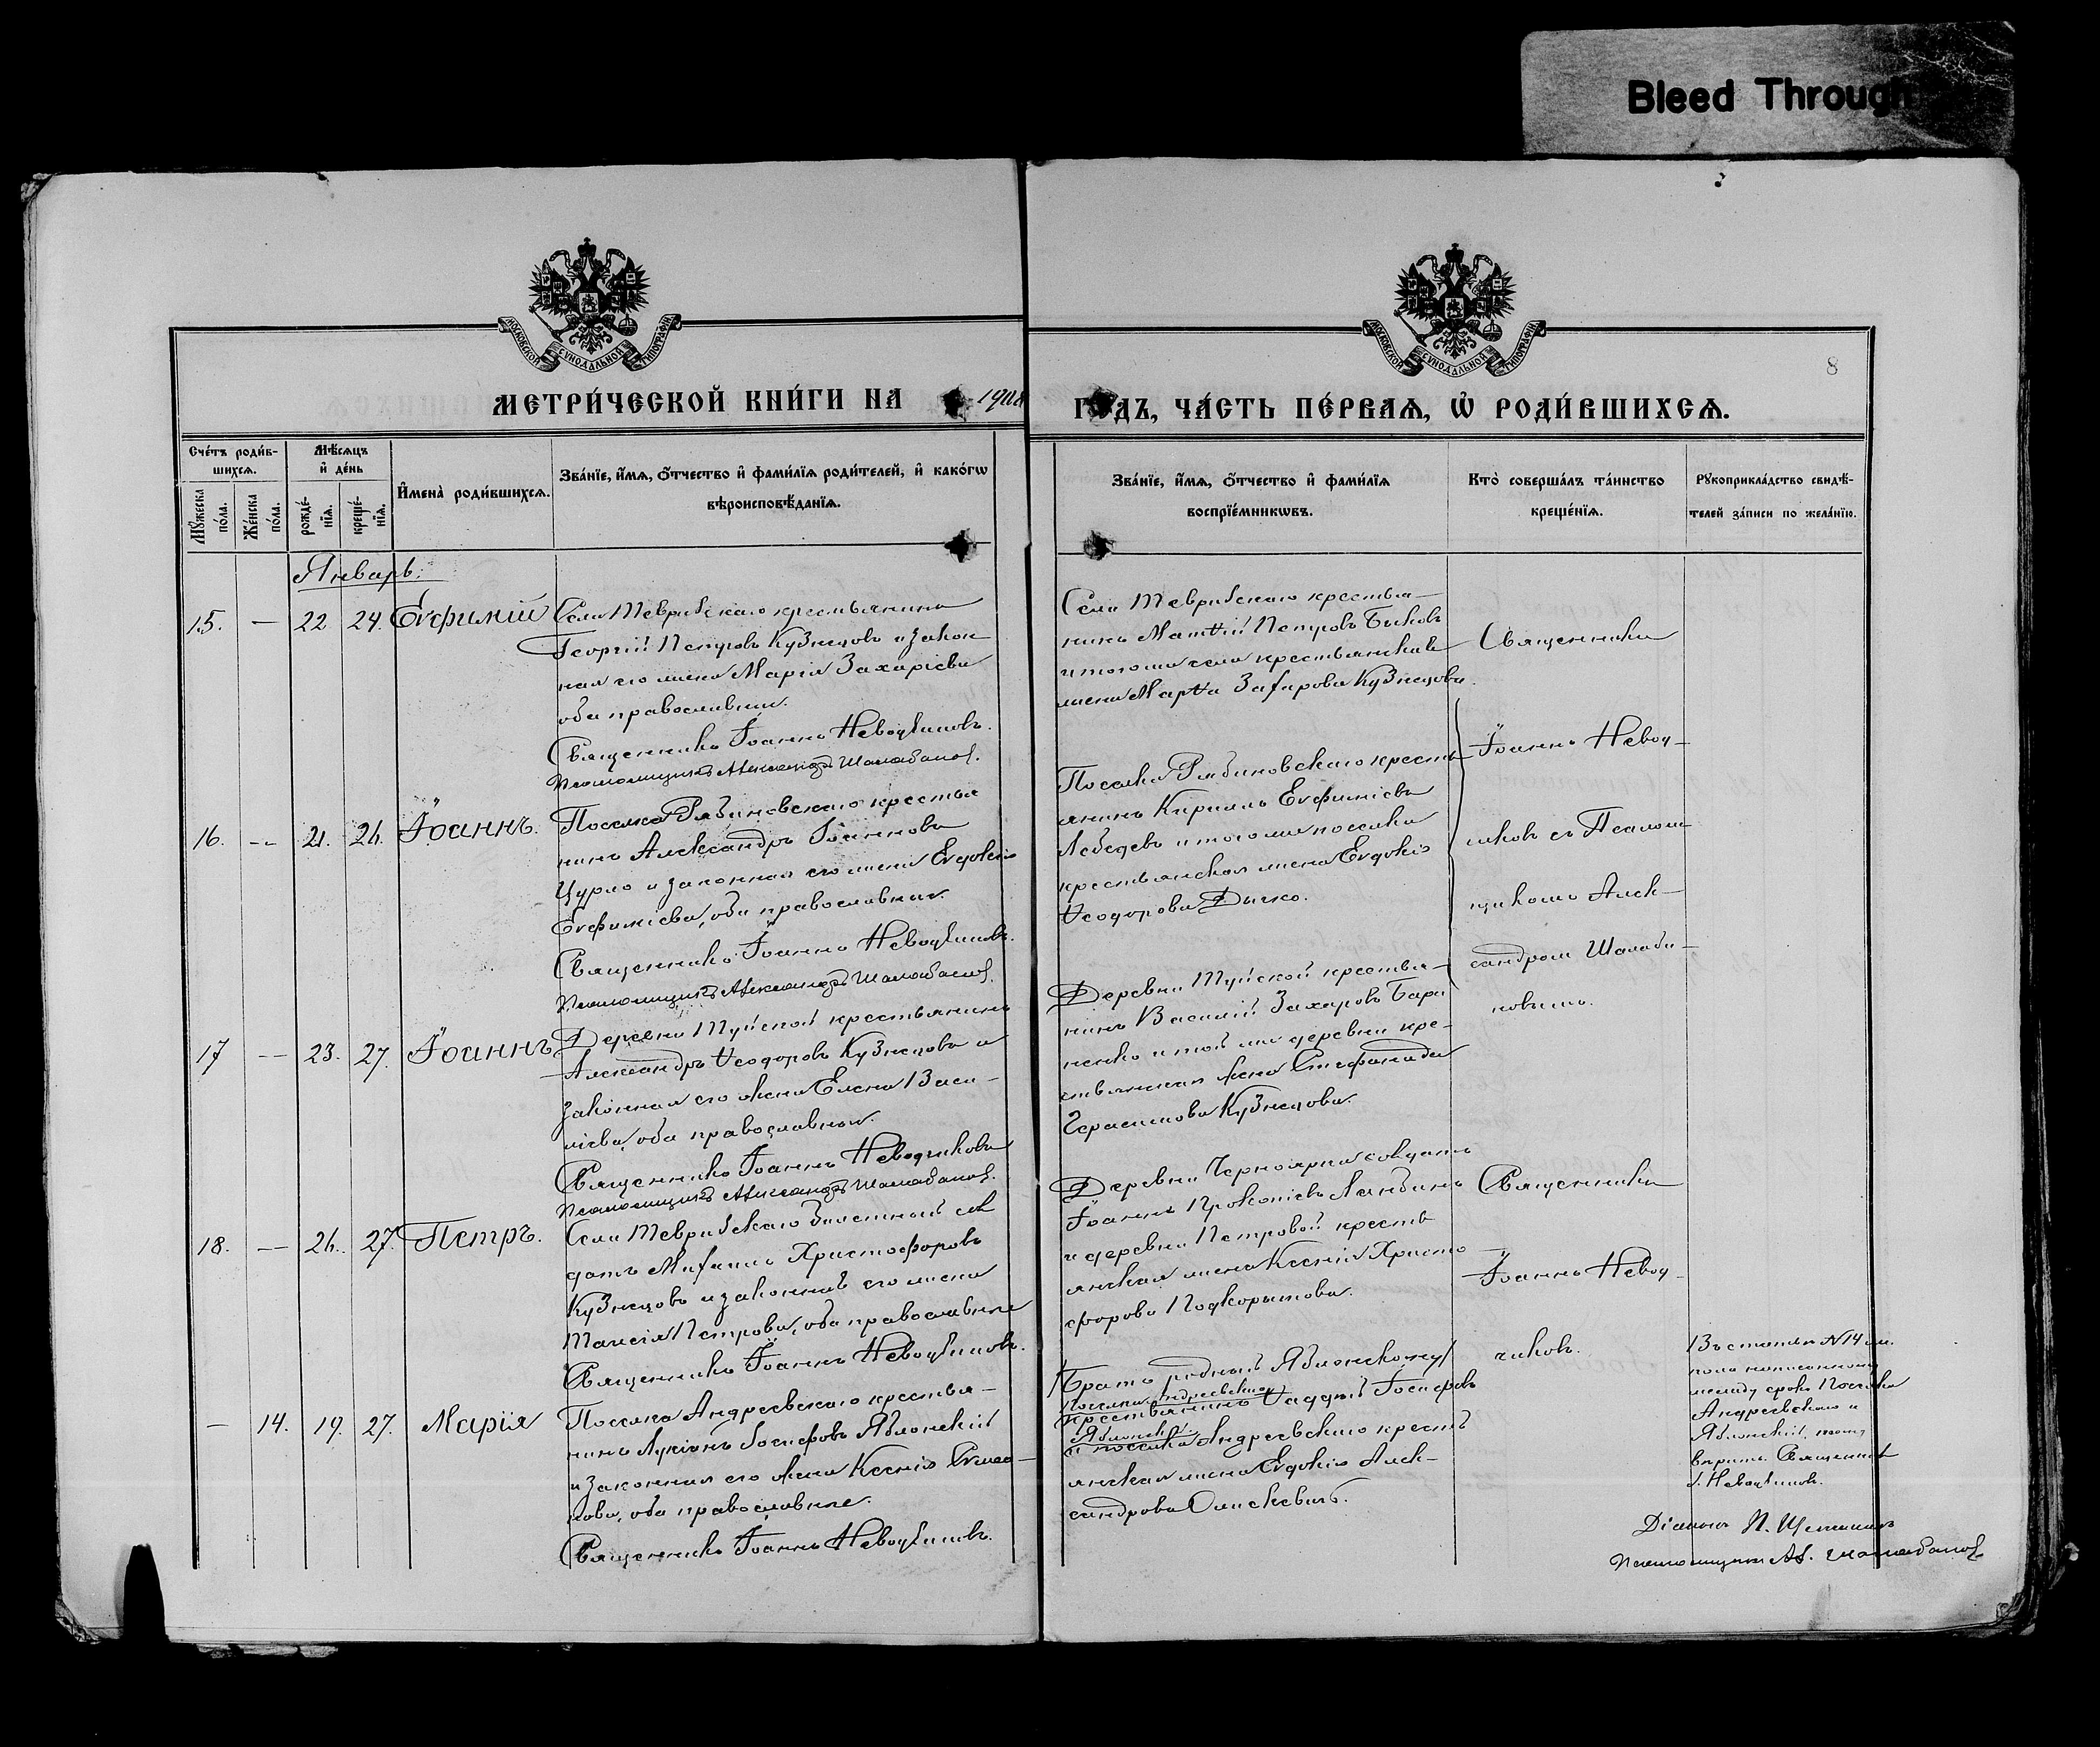 Bleed Through
МОСКОВСКОЙ СѴНОДАЛЬНОЙ ТИПОГРАФІИ
МОСКОВСКОЙ СѴНОДАЛЬНОЙ ТИПОГРАФІИ
8
МЕТРИ́ЧЕСКОЙ КНИ́ГИ НА 1908
ГОДЪ, ЧА́СТЬ ПЕ́РВАѦ, Ѡ҆ РОДИ́ВШИХСѦ.
Сче́тъ роди́в-
шихсѧ.
Мꙋжеска по́ла.
Же́нска по́ла.
Мѣ́сѧцъ
и҆ де́нь
рожде́-
нїѧ.
креще́-
нїѧ.
И҆мена̀ роди́вшихсѧ.
Зва́нїе, и҆́мѧ, ѻ҆́тчество и҆ фами́лїѧ роди́телей, и҆ како́гѡ
вѣроисповѣ́данїѧ.
Зва́нїе, и҆́мѧ, ѻ҆́тчество и҆ фами́лїѧ
воспрїе́мникѡвъ.
Кто̀ соверша́лъ та́инство
креще́нїѧ.
Рꙋкоприкла́дство свидѣ́-
телей за́писи по жела́нїю.
Январь.
15. — 22 24. Евфимій
Села Тевризскаго крестьянинъ
Георгій Петровъ Кузнецовъ и закон
ная его жена Марія Захаріева
оба православныи.
Священникъ Іоаннъ Неводчиковъ.
Псаломщикъ Александръ Шалабановъ.
Села Тевризскаго крестья-
нинъ Матѳій Петровъ Быковъ
и тогоже села крестьянская
жена Марѳа Захарова Кузнецова.
Священникъ
Іоаннъ Невод-
чиковъ съ Псалом-
щикомъ Алек-
сандромъ Шалаба-
новымъ.
16. -- 21. 26. Іоаннъ.
Поселка Рябиновскаго крестья
нинъ Александръ Іоанновъ
Цурло и законная его жена Евдокія
Евфиміева, оба православныи.
Священникъ Іоаннъ Неводчиковъ.
Псаломщикъ Александръ Шалабановъ.
Поселка Рябиновскаго кресть-
янинъ Кириллъ Евфиміевъ
Лебедевъ и тогоже поселка
крестьянская жена Евдокія
Ѳеодорова Дычко.
17 -- 23. 27. Іоаннъ
Деревни Туйской крестьянинъ
Александръ Ѳеодоровъ Кузнецовъ и
законная его жена Елена Васи-
ліева, оба православныи.
Священникъ Іоаннъ Неводчиковъ
Псаломщикъ Александръ Шалабановъ.
Деревни Туйской крестья-
нинъ Василій Захаровъ Бара
ненко и той же деревни кре-
стьянская жена Стефанида
Герасимова Кузнецова.
18. — 26. 27. Петръ.
Села Тевризскаго билетный сол
датъ Михаилъ Христофоровъ
Кузнецовъ и законная его жена
Таисія Петрова, оба православные
Священникъ Іоаннъ Неводчиковъ.
Деревни Черноярки солдатъ
Іоаннъ Прокопіевъ Лямбинъ
и деревни Петровой кресть
янская жена Ксенія Христо
форова Подкорытова.
Священникъ
Іоаннъ Невод-
чиковъ.
— 14. 19. 27. Марія
Поселка Андреевскаго крестья-
нинъ Лукіанъ Іосифовъ Яблонскій
и законная его жена Ксенія
оба православные.
Священникъ Іоаннъ Неводчиковъ.
Братъ родный Яблонскому
поселка Андреевскаго
крестьянинъ Ѳаддей Іосифовъ
Яблонскій
и поселка Андреевскаго кресть
янская жена Евдокія Алек-
сандрова
Въ статьѣ № 14 жен.
пола написанному
между строкъ Поселка
Андреевскаго и
Яблонскій, тому
вѣрить. Священникъ
І. Неводчиковъ.
Діаконъ П.
Псаломщикъ Ал. Шалабановъ